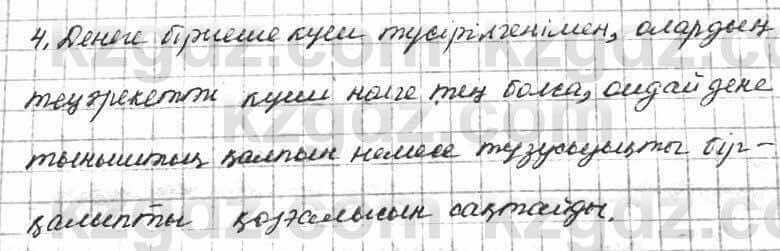 4. Денеге бірнеше күш түсірілгенімен, олардың
теңәрекетті күші нөлге тең болса, ондай дене
тыныштық қалпын немесе түзусызықты бір-
қалыпты қозғалысын сақтайды.
kzgdz.com